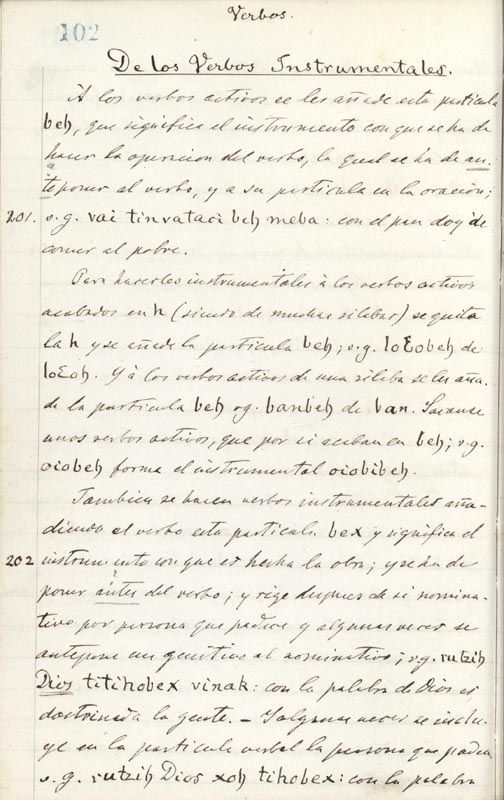 Verbos.
102
De los Verbos Instrumentales.
A los verbos activos se les añade esta particula
beh, que significa el instrumento con que se ha de
hacer la operacion del verbo, la qual se ha de an-
teponer al verbo, y a su particula en la oracion;
201. v.g. vai tinvataci beh meba: con el pan doy de
comer al pobre.
Para hacerles instrumentales à los verbos activos
acabados en h (siendo de muchas silabas) se quita
la h y se añade la particula beh; v.g. loƐobeh de
loƐoh. Y à los verbos activos de una silaba se les aña-
de la particula beh vg. banbeh de ban. Sacanse
unos verbos activos, que por si acaban en beh; v.g.
oiobeh forma el instrumental oiobibeh.
Tambien se hacen verbos instrumentales aña-
diendo al verbo esta particula bex y significa el
202 instrumento con que es hecha la obra; y se ha de
poner ántes del verbo; y rige despues de si nomina-
tivo por persona que padece y algunas veces se
antepone un genitivo al nominativo; v.g. rutzih
Dios titihobex vinak: con la palabra de Dios es
doctrinada la gente. – Y algunas veces se inclu-
ye en la particula verbal la persona que padece
v.g. rutzih Dios xoh tihobex: con la palabra